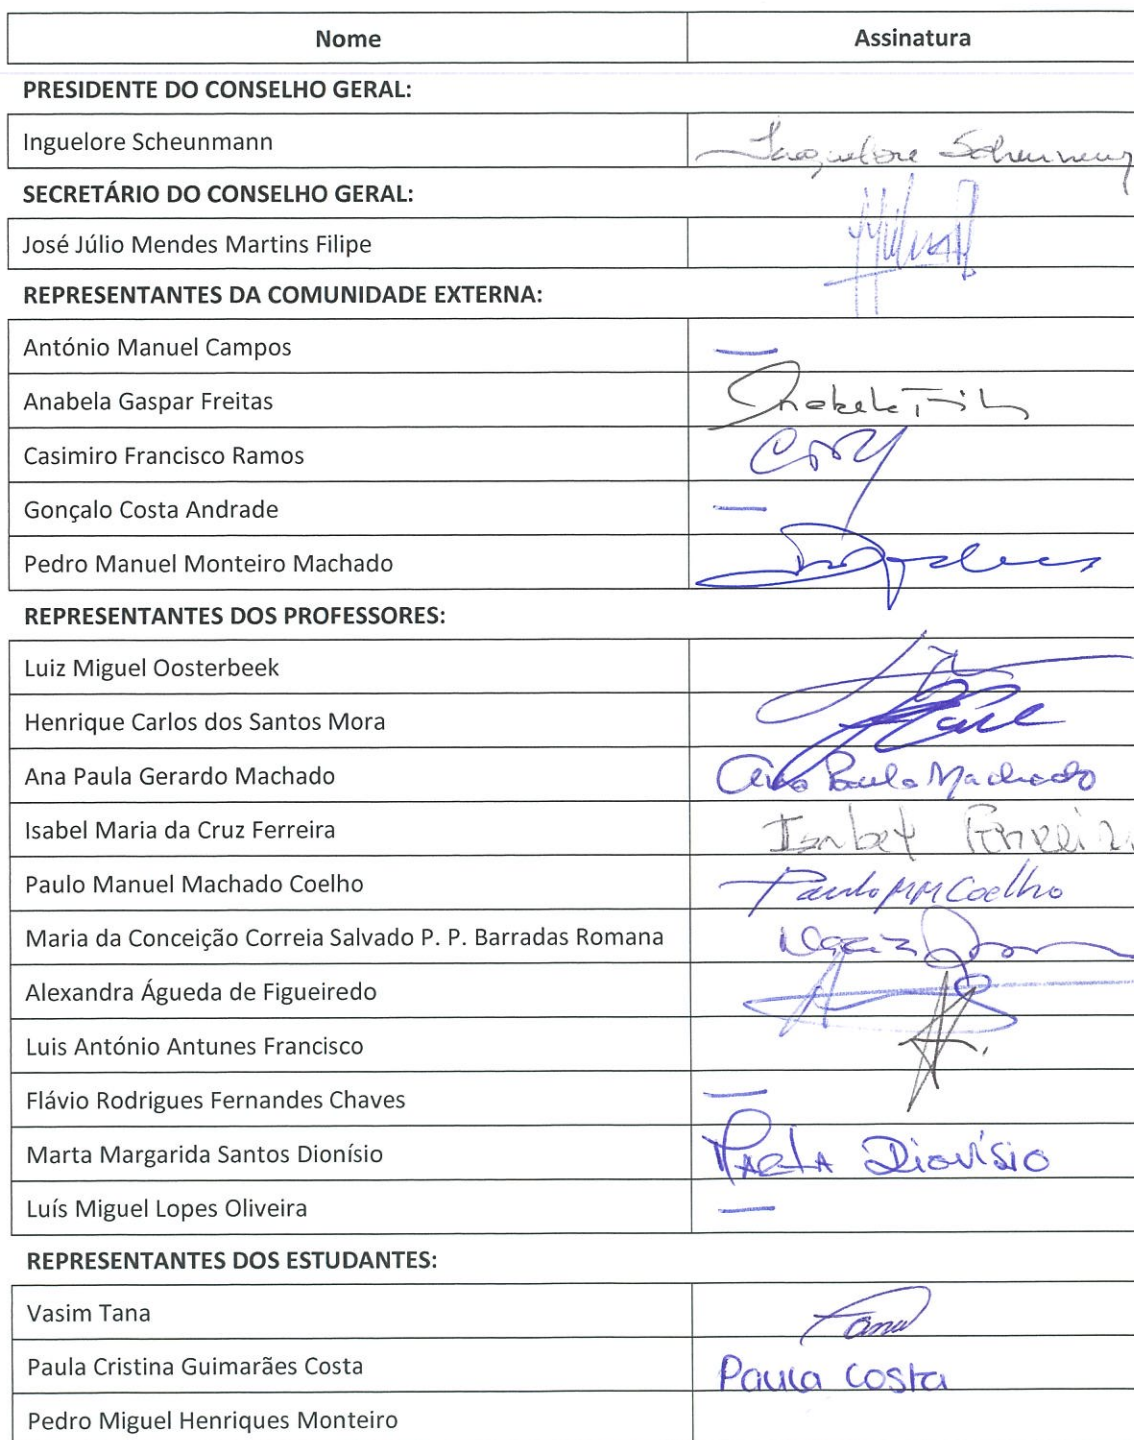 Nome Assinatura
PRESIDENTE DO CONSELHO GERAL:
Inguelore Scheunmann
SECRETÁRIO DO CONSELHO GERAL:
José Júlio Mendes Martins Filipe
REPRESENTANTES DA COMUNIDADE EXTERNA:
António Manuel Campos —
Anabela Gaspar Freitas
Casimiro Francisco Ramos
Gonçalo Costa Andrade —
Pedro Manuel Monteiro Machado
REPRESENTANTES DOS PROFESSORES:
Luiz Miguel Oosterbeek
Henrique Carlos dos Santos Mora
Ana Paula Gerardo Machado Ana Paula Machado
Isabel Maria da Cruz Ferreira Isabel Ferreira
Paulo Manuel Machado Coelho Paulo MM Coelho
Maria da Conceição Correia Salvado P. P. Barradas Romana
Alexandra Águeda de Figueiredo
Luis António Antunes Francisco
Flávio Rodrigues Fernandes Chaves —
Marta Margarida Santos Dionísio Marta Dionísio
Luís Miguel Lopes Oliveira —
REPRESENTANTES DOS ESTUDANTES:
Vasim Tana
Paula Cristina Guimarães Costa Paula Costa
Pedro Miguel Henriques Monteiro